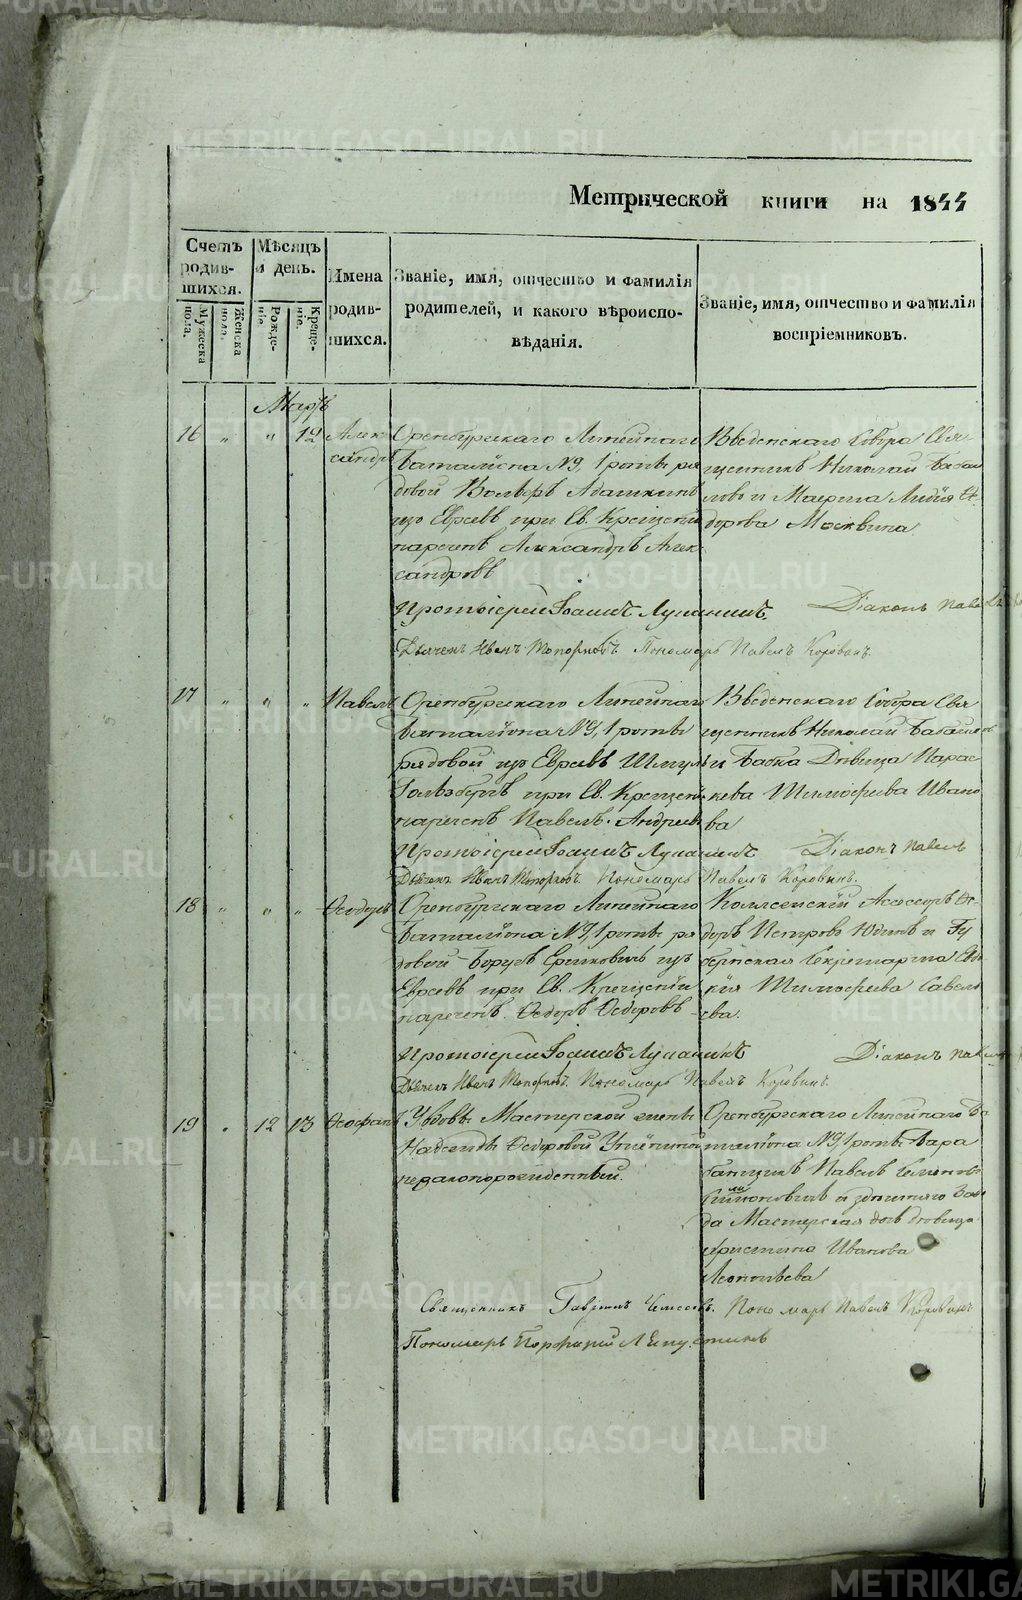 METRIKI.GASO-URAL.RU
Метрической книги на 1844
Счетъ родив-шихся.
Мужеска пола.
Женска пола.
Мѣсяцъ и день.
Рожде-ніе.
Креще-ніе.
Имена родив-шихся.
Званіе, имя, отчество и фамилія
родителей, и какого вѣроиспо-
вѣданія.
Званіе, имя, отчество и фамилія
воспріемниковъ.
Мартъ
16 " " 12 Алек-
сандръ
Оренбургскаго Линейнаго
Баталіона №9, 1 роты ря
довой Адашкинъ
изъ Евреевъ при Св. Крещеніи
нареченъ Александръ Алек
сандровъ
Введенскаго Собора Свя-
щенникъ Николай Бабай
ловъ и Лидія Ѳе-
дорова Москвина
Протоіерей Іоаннъ Діаконъ Павелъ
Дьячекъ Иванъ Топорковъ. Пономарь Павелъ Коровинъ.
17 " " " Павелъ
Оренбургскаго Линейнаго
Баталіона №9, 1 роты
рядовой изъ Евреевъ Шмуль
Гользбергъ при Св. Крещені
нареченъ Павелъ Андреевъ
Введенскаго Собора Свя
щенникъ Николай Бабайловъ
и Бабка Дѣвица Парас
кева Тимофѣева Ивано
ва
Протоіерей Іоаннъ Діаконъ Павелъ
Дьячекъ Иванъ Топорковъ. Пономарь Павелъ Коровинъ.
18 " " " Ѳеодоръ
Оренбургскаго Линейнаго
Баталіона №9, 1 роты ря
довой Борухъ изъ
Евреевъ при Св. Крещеніи
нареченъ Ѳедоръ Ѳедоровъ
Коллежскій Ассесоръ Ѳе-
доръ Петровъ Юдинъ и Гу
бернская Секретарша
Тимофѣева Савель
ева.
Протоіерей Іоаннъ Діаконъ Павелъ
Дьячекъ Иванъ Топорковъ. Пономарь Павелъ Коровинъ.
19 " 12 13 Ѳеофанъ
У вдовы Мастерской жены
Надежды Ѳедоровой
незаконорожденный.
Оренбургскаго Линейнаго Ба
таліона №9, 1 роты Бара
банщикъ Павелъ Семенов
и здѣшняго Заво
да Мастерская дочь дѣвица
Христина Иванова
Леонтьева
Священникъ Гавріилъ Пономарь Павелъ Коровинъ
Пономарь Порфирій